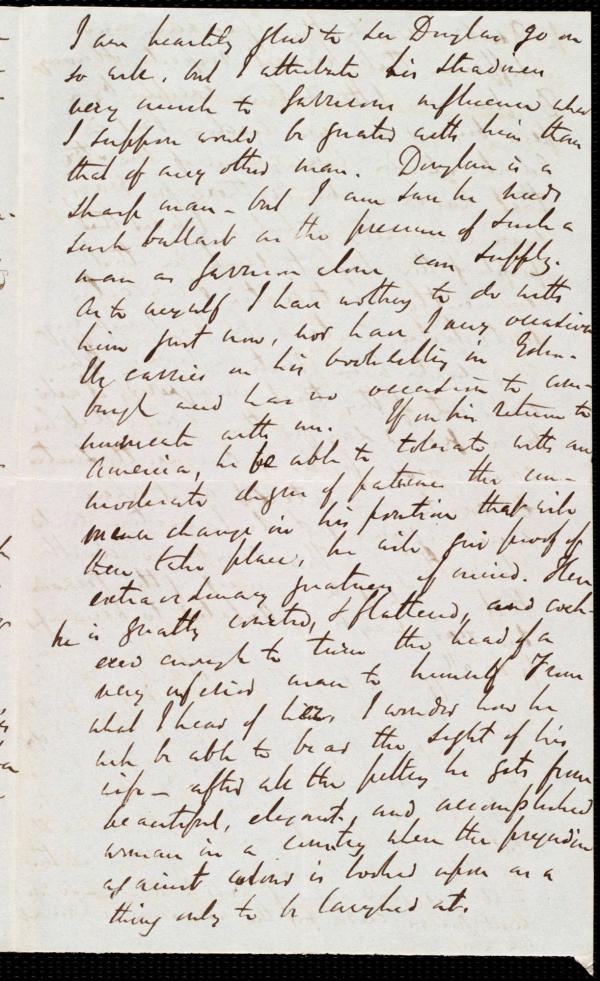 I am heartily glad to see Douglas go on
so well, but I attribute his steadiness
very much to Garrisons influence which
I suppose would be greater with him than
that of any other man. Douglas is a
sharp man - but I am sure he needs
such ballast as the presence of such a
man as Garrison alone can supply.
As to myself I have nothing to do with
him just now, nor have I any occasion
He carries on his bookselling in Edin-
burgh and has no occasion to com-
municate with me. If on his return to
America, he be able to tolerate with any
moderate degree of patience the im-
mense change in his position that will
then take place, he will give proof of
extraordinary greatness of mind. Here
he is greatly courted, & flattered, and
enough to turn the head of a
very inferior man to himself From
what I hear of him, I wonder how he
will be able to bear the sight of his
wife - after all the petting he gets from
beautiful, elegant, and accomplished
women in a country where the prejudice
against colour is looked upon as a
thing only to be laughed at.